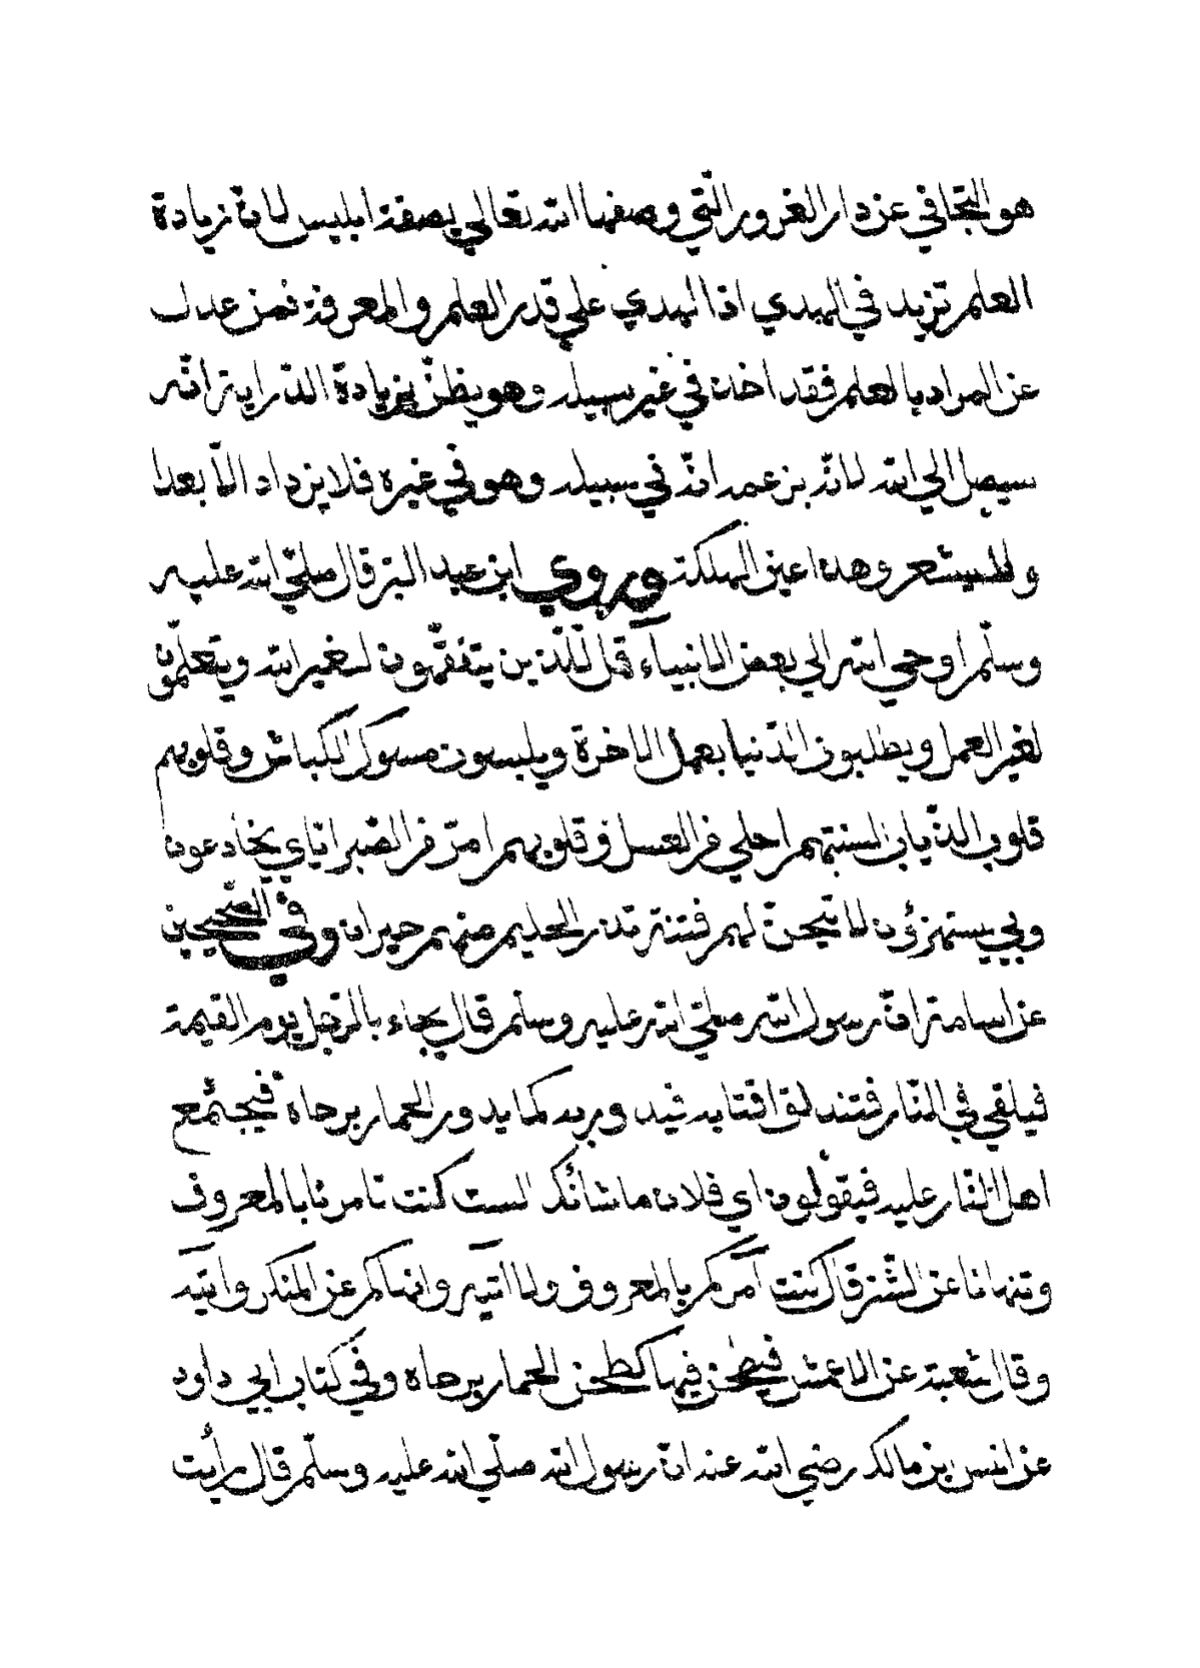 هو التجافي عن دار الغرور التي وصفها الله تعالي بصفة ابليس لان زيادة
العلم تزيد في الهدي اذا الهدي علي قدر العلم والمعرفة فمن عدل
عن المراد بالعلم فقد اخذ في غير سبيله وهو يظنّ بزيادة الدّراية انّه
سيصل الي الله لانّه بزعمه انّه في سبيله وهو في غيره فلا يزداد الاّ بعدا
ولا يستشعر وهذا عين الهلكة وروي ابن عبد البرّ قال صلّي الله عليه
وسلّم اوحي الله الي بعض الانبياء قل للّذين يتفقّهون لغير الله ويتعلّمون
لغير العمل ويطلبون الدّنيا بعمل الاخرة ويلبسون مسوك الكباش وقلوبهم
قلوب الذّياب السنتهم احلي من العسل وقلوبهم امرّ من الصّبر ايّاي يخادعون
وبي يستهزؤن لاتيحنّ لهم فتنة تذر الحليم منهم حيران وفي الصّحيحين
عن اسامة انّ رسول الله صلّي الله عليه وسلّم قال يجاء بالرّجل يوم القيمة
فيلقي في النّار فتندلق اقتابه فيدور به كما يدور الحمار برحاه فيجتمع
اهل النّار عليه فيقولون اي فلان ما شأنك الست كنت تامرنا بالمعروف
وتنهانا عن الشّر قال كنت آمركم بالمعروف ولا اتيه وانهاكم عن المنكر واتيه
وقال شعبة عن الاعمش فيطحن فيها كطحن الحمار برحاه وفي كتاب ابي داود
عن انس بن مالك رضي الله عنه انّ رسول الله صلّي الله عليه وسلّم قال رأيت